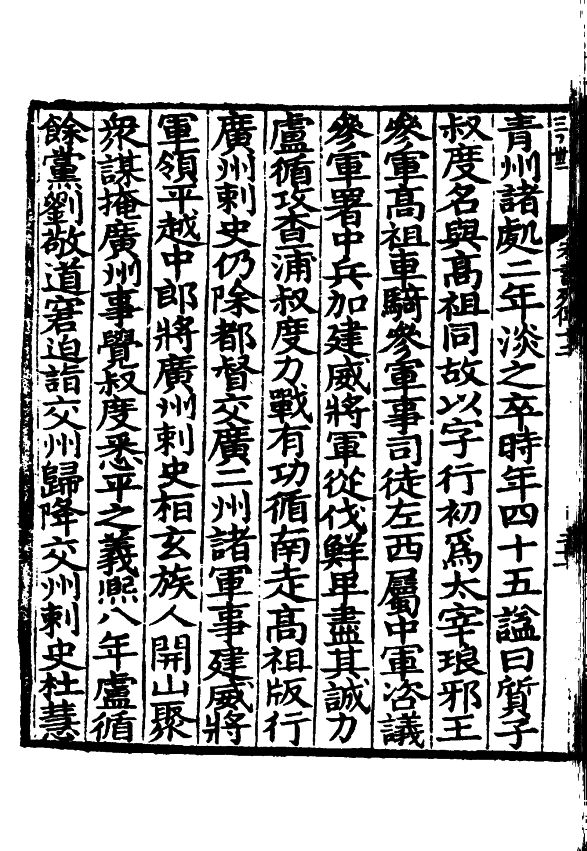 青州諸處二年淡之卒時年四十五謚曰質子
叔度名與高祖同故以字行初爲太宰琅邪王
參軍高祖車騎參軍事司徒左西屬中軍咨議
參軍署中兵加建威將軍從伐鮮卑盡其誠力
盧循攻查浦叔度力戰有功循南走高祖版行
廣州刺史仍除都督交廣二州諸軍事建威將
軍領平越中郎將廣州刺史桓玄族人開山聚
衆謀掩廣州事覺叔度悉平之義熙八年盧循
餘黨劉敬道窘迫詣交州歸降交州刺史杜慧